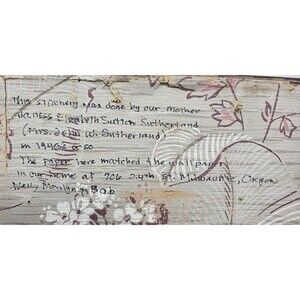 This stitchery was done by our mother
Elizabeth Sutton Sutherland
(Mrs. John W. Sutherland)
in 1940's or so
The paper here matched the wall paper
in our home at 706 St. Milwaukie, Oregon
Nelly Marilyn Bob